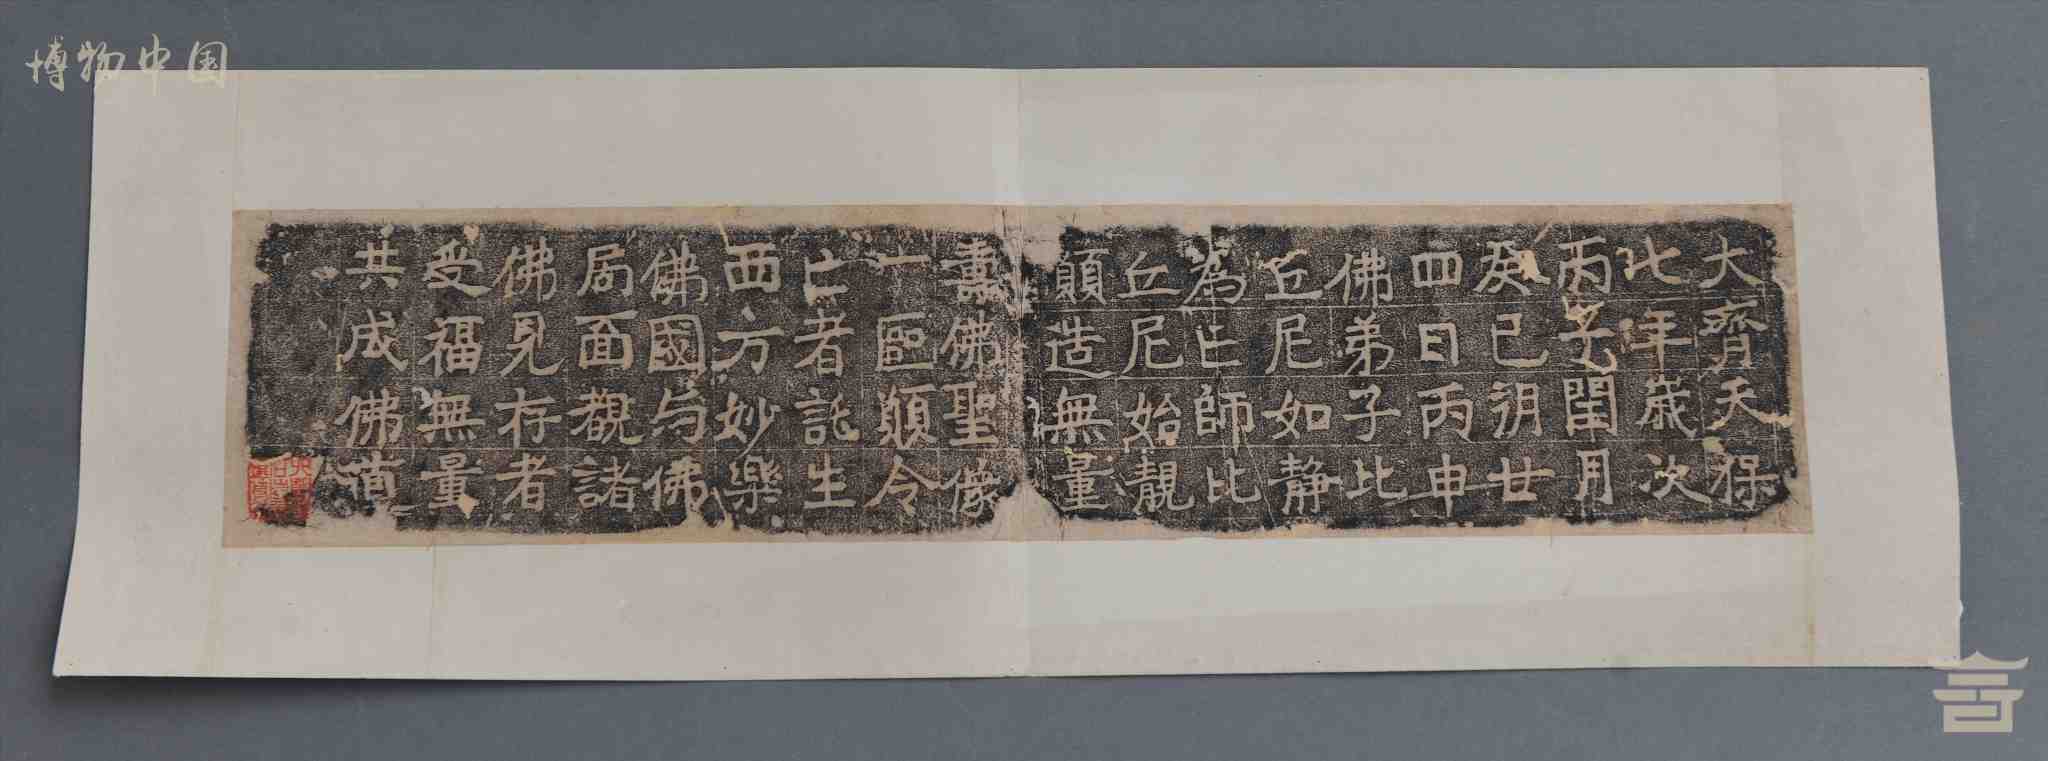 博物中国
大齊天保
七年歲次
丙子閏月
癸巳朔廿
四日丙申
佛弟子比
丘尼如静
為亡師比
丘尼始靚
願造無量
壽佛聖像
一區願令
亡者託生
西方妙樂
佛國与佛
局面觀諸
佛見存者
受福無量
共成佛道